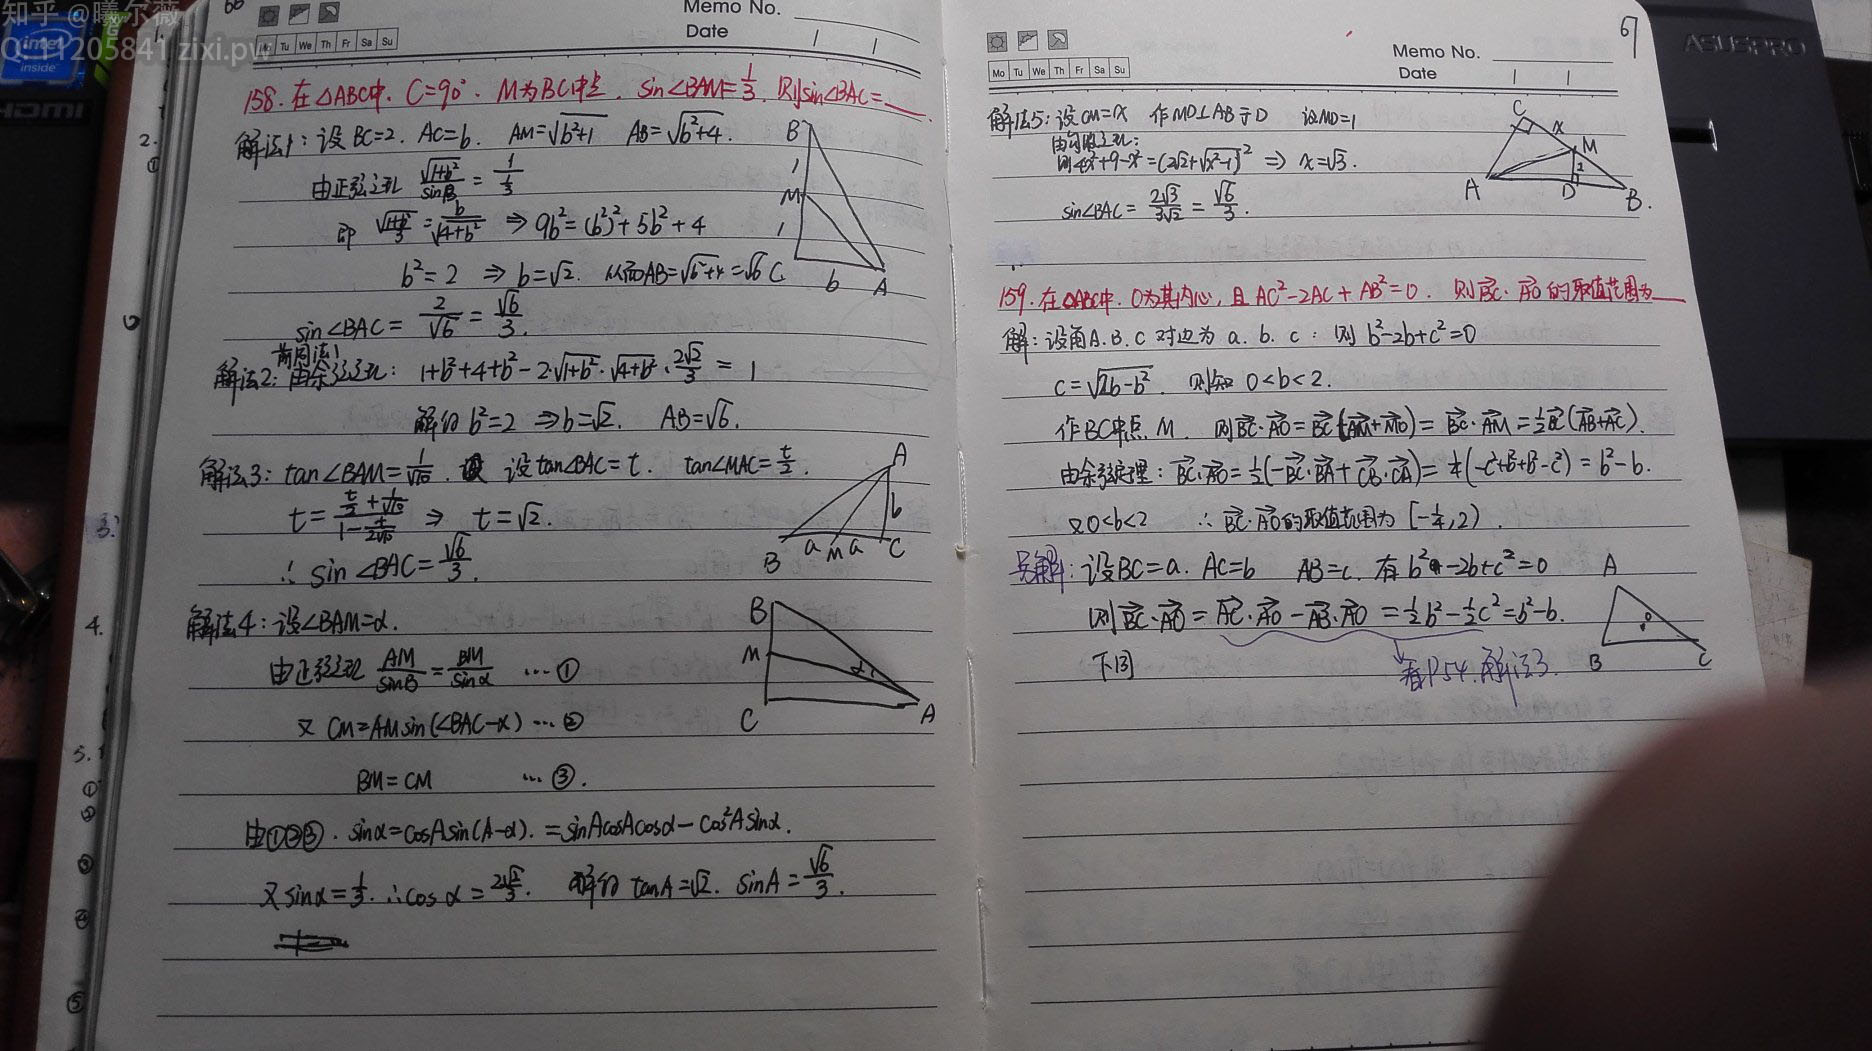 知乎 @曦尔薇
Q:11205841 zixi.pw
intel
inside
HDMI
ASUSPRO
66
Memo No.
Date
Mo Tu We Th Fr Sa Su
158. 在△ABC中. C=90°. M为BC中点. sin∠BAM=1/3. 则sin∠BAC=
解法1: 设BC=2. AC=b. AM=√(b²+1) AB=√(b²+4).
由正弦定理 √(1+b²)/sinB = 1/(1/3)
即 √(1+b²)/3 = b/√(4+b²) ⇒ 9b²=(b²)²+5b²+4
b²=2 ⇒ b=√2. 从而AB=√(b²+4)=√6
sin∠BAC= 2/√6 = √6/3.
B
1
M
1
C
b
A
前同法1
解法2: 由余弦定理: 1+b²+4+b²-2·√(1+b²)·√(4+b²)·2√2/3 = 1
解得 b²=2 ⇒b=√2. AB=√6.
解法3: tan∠BAM=1/√8. 设tan∠BAC=t. tan∠MAC=t/2.
⇒ t=√2.
∴ sin∠BAC=√6/3.
A
b
B a M a C
解法4: 设∠BAM=α.
由正弦定理 AM/sinB = BM/sinα ...①
又 CM=AMsin(∠BAC-α) ...②
BM=CM ...③.
由①②③. sinα=cosAsin(A-α). =sinAcosAcosα-cos²Asinα.
又sinα=1/3. ∴cosα=2√2/3. 解得 tanA=√2. sinA=√6/3.
B
M
α
C
A
67
Memo No.
Date
Mo Tu We Th Fr Sa Su
解法5: 设CM=x 作MD⊥AB于D 设MD=1
由勾股定理:
则4x²+9-x²=(2√2+√(x²-1))² ⇒ x=√3.
sin∠BAC= 2√3/3√2 = √6/3.
C
x
M
A
D
B
159. 在△ABC中. O为其外心, 且AC²-2AC+AB²=0. 则BC·AO的取值范围为
解: 设角A.B.C对边为 a. b. c: 则 b²-2b+c²=0
c=√(2b-b²). 则知 0<b<2.
作BC中点M. 则BC·AO=BC(AM+MO)=BC·AM=½BC(AB+AC).
由余弦定理: BC·AO=½(-BC·BA+CB·CA)
=b²-b.
又0<b<2 ∴ BC·AO的取值范围为 [-1/4,2).
另解: 设BC=a. AC=b AB=c. 有b²-2b+c²=0
则BC·AO=AC·AO-AB·AO=½b²-½c²=b²-b.
下同
看P54.解法3.
A
O
B
C
2.
①
3.
4.
5.
①
②
③
④
⑤